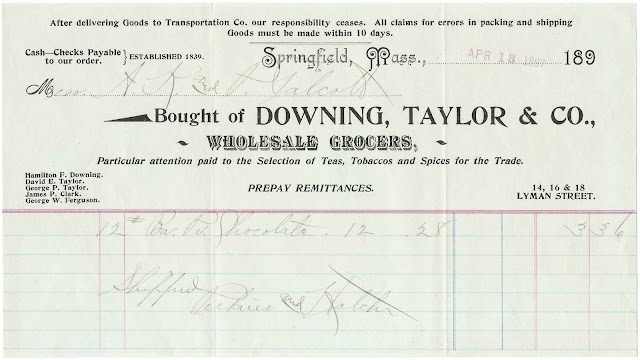 After delivering Goods to Transportation Co. our responsibility ceases. All claims for errors in packing and shipping
Goods must be made within 10 days.
Cash—Checks Payable to our order. } ESTABLISHED 1839.
Springfield, Mass., APR 13 1897 189
M
Bought of DOWNING, TAYLOR & CO.,
WHOLESALE GROCERS,
Particular attention paid to the Selection of Teas, Tobaccos and Spices for the Trade.
Hamilton F. Downing.
David E. Taylor.
George P. Taylor.
James P. Clark.
George W. Ferguson.
PREPAY REMITTANCES.
14, 16 & 18
LYMAN STREET.
12 # Chocolate. 12 .28 3 36
Shipped
and